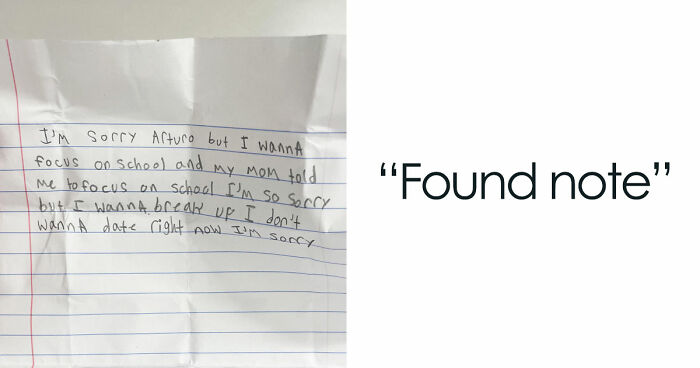 I'M Sorry Arturo but I wannA
focus on school and my mom told
me to focus on school I'M so sorry
but I wannA break up I don't
wannA date right now I'M sorry
“Found note”